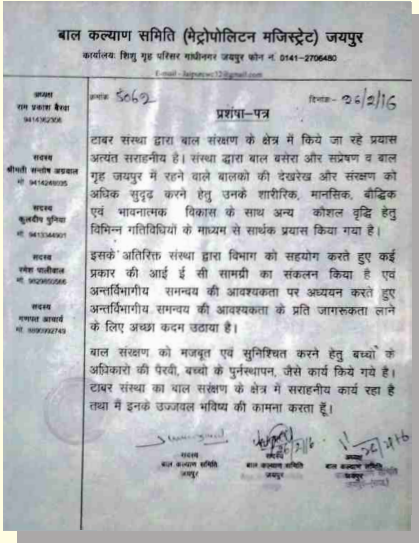 बाल कल्याण समिति (मेट्रोपोलिटन मजिस्ट्रेट) जयपुर
कार्यालयः शिशु गृह परिसर गांधीनगर जयपुर फोन नं 0141-2706480
अध्यक्ष
राम प्रकाश बैरवा
9414362306
सदस्य
श्रीमती सन्तोष अग्रवाल
सदस्य
कुलदीप पुनिया
सदस्य
रमेश पालीवाल
सदस्य
गणपत आचार्य
क्रमांक 5062
दिनांक- 26/2/16
प्रशंषा-पत्र
टाबर संस्था द्वारा बाल संरक्षण के क्षेत्र में किये जा रहे प्रयास
अत्यंत सराहनीय है। संस्था द्वारा बाल बसेरा और सप्रेषण व बाल
गृह जयपुर में रहने वाले बालको की देखरेख और संरक्षण को
अधिक सुदृढ़ करने हेतु उनके शारीरिक, मानसिक, बौद्धिक
एवं भावनात्मक विकास के साथ अन्य कोशल वृद्धि हेतु
विभिन्न गतिविधियों के माध्यम से सार्थक प्रयास किया गया है।
इसके अतिरिक्त संस्था द्वारा विभाग को सहयोग करते हुए कई
प्रकार की आई ई सी सामग्री का संकलन किया है एवं
अन्तर्विभागीय समन्वय की आवश्यकता पर अध्ययन करते हुए
अन्तर्विभागीय समन्वय की आवश्यकता के प्रति जागरूकता लाने
के लिए अच्छा कदम उठाया है।
बाल संरक्षण को मजबूत एवं सुनिश्चित करने हेतु बच्चों के
अधिकारो की पैरवी, बच्चो के पुर्नस्थापन, जैसे कार्य किये गये है।
टाबर संस्था का बाल संरक्षण के क्षेत्र में सराहनीय कार्य रहा है
तथा में इनके उज्जवल भविष्य की कामना करता हूँ।
सदस्य
बाल कल्याण समिति
जयपुर
सदस्य
बाल कल्याण समिति
जयपुर
अध्यक्ष
बाल कल्याण समिति
जयपुर